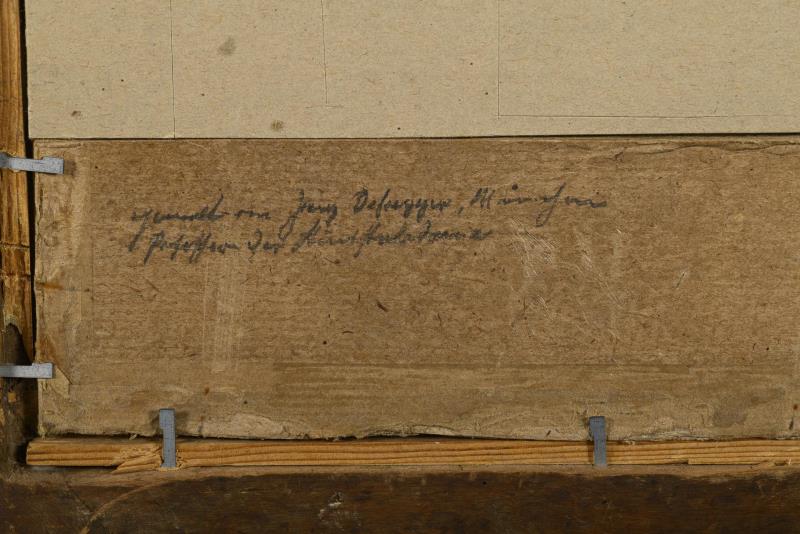 gemalt von Franz Defregger, München
Professor der Kunstakademie